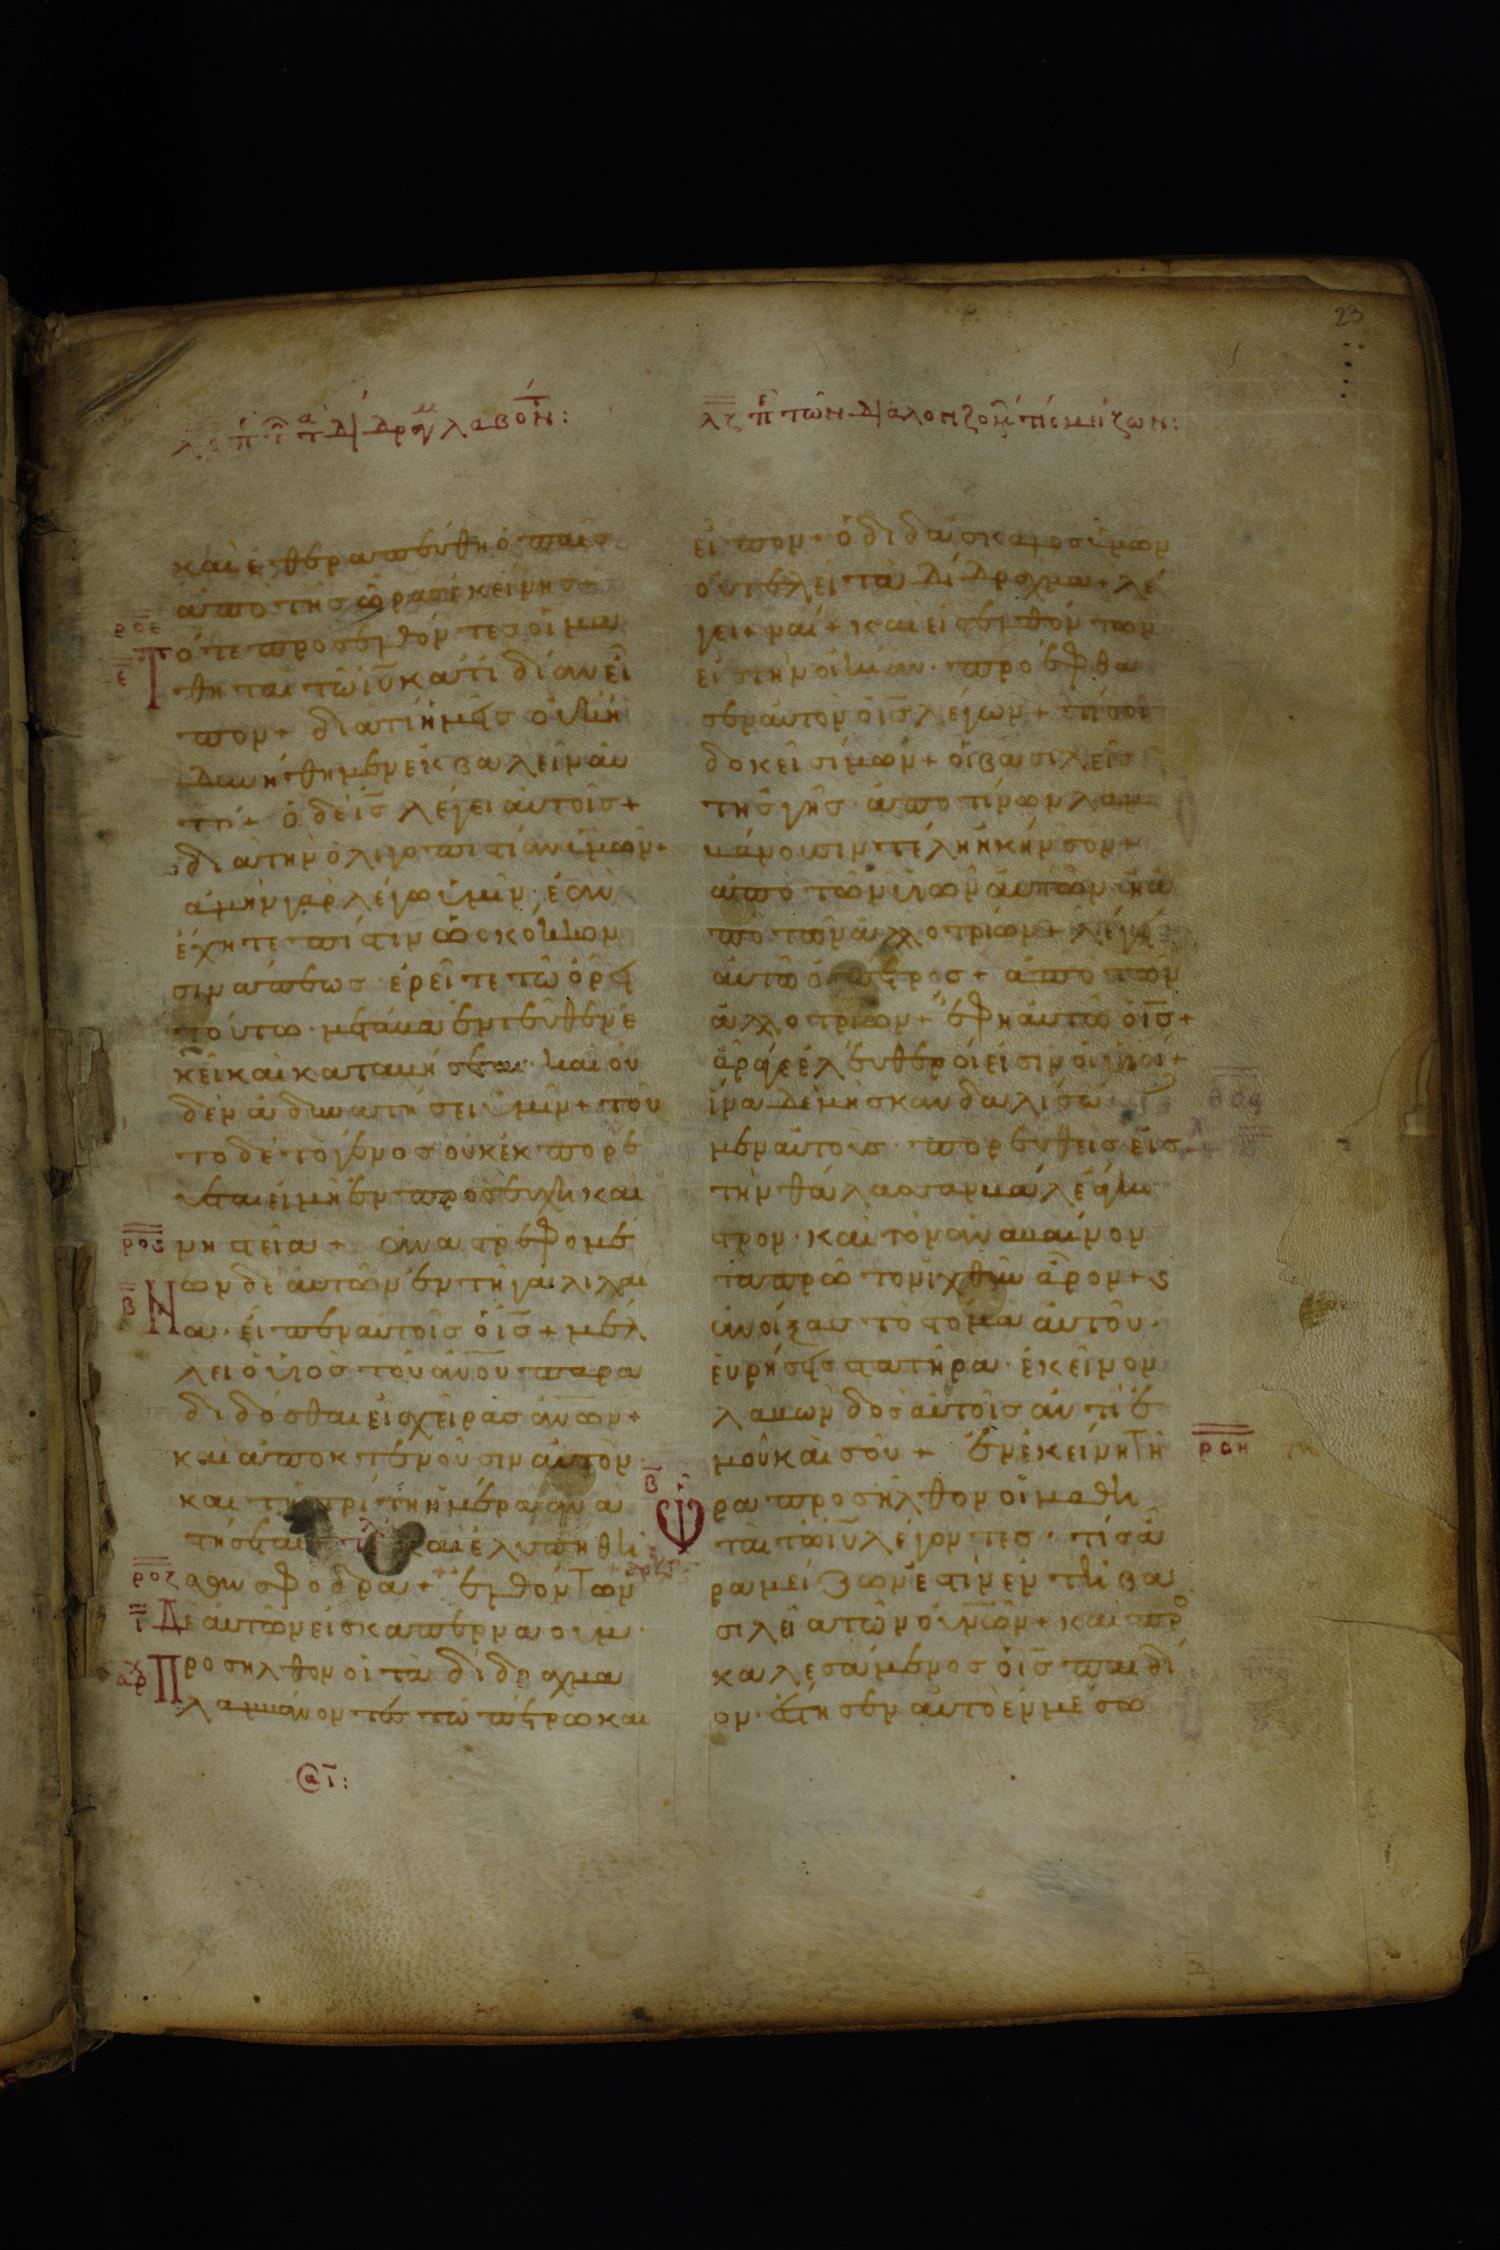 λϛ π τ τ διδρχμ λαβοντ:
καὶ ἐθεραπεύθη ὁ παῖς
ἀπὸ τῆς ὥρας ἐκείνης+
ροε
Τότε προσελθόντες οἱ μα
ε
θηταὶ τῶ ιυ κατιδίαν εἶ
πον+ διατί ἡμεῖς οὐκ ἠ
δυνήθημεν ἐκβαλεῖν αὐ
τό+ ὁ δὲ ις λέγει αὐτοῖς+
διὰ τὴν ὀλιγοπιστίαν ὑμῶν+
ἀμὴν γὰρ λέγω ὑμῖν· ἐὰν
ἔχητε πίστιν ὡς κόκκον
σινάπεως· ἐρεῖτε τῶ ὄρει
τούτω· μετάβα ἐντεῦθεν ἐ
κεῖ καὶ καταβήσεται· καὶ οὐ
δὲν ἀδυνατήσει ὑμῖν+ τοῦ
το δὲ τὸ γένος οὐκ ἐκπορεύ
εται εἰ μὴ ἐν προσευχῆ καὶ
ρος νηστεία+ ἀναστρεφομέ
β
Νων δὲ αὐτῶν ἐν τῆ γαλιλαί
α· εἶπεν αὐτοῖς ὁ ις+ μέλ
λει ὁ υἱὸς τοῦ ανου παρα
δίδοσθαι εἰς χεῖρας ανων+
καὶ ἀποκτενοῦσιν αὐτὸν·
καὶ τῆ τρίτη ἡμέρα ἀνα
στήσεται+ καὶ ἐλυπήθη
ροζ σαν σφόδρα+ ἐλθόντων
ι
Δὲ αὐτῶν εἰς καπερναούμ·
αρχ
Προσῆλθον οἱ τὰ δίδραχμα
λαμβάνοντες τῶ πέτρω καὶ
λζ π τῶν διαλογιζομ τίς μείζων:
23
εἶπον+ ὁ διδάσκαλος ὑμῶν
οὐ τελεῖ τὰ δίδραχμα+ λέ
γει+ ναί+ καὶ εἰσελθόντων
εἰς τὴν οἰκίαν· προέφθα
σεν αὐτὸν ὁ ις λέγων+ τί σοι
δοκεῖ σίμων+ οἱ βασιλεῖς
τῆς γῆς· ἀπὸ τίνων λαμ
βάνουσιν τέλη ἢ κῆνσον+
ἀπὸ τῶν υἱῶν αὐτῶν ἢ ἀ
πὸ τῶν ἀλλοτρίων+ λέγει
αὐτῶ ὁ πέτρος+ ἀπὸ τῶν
ἀλλοτρίων+ ἔφη αὐτῶ ὁ ις+
ἄραγε ἐλεύθεροί εἰσιν οἱ υἱοί+
ροθ
ἵνα δὲ μὴ σκανδαλίσω
μεν αὐτούς· πορευθεὶς εἰς
τὴν θάλασσαν βάλε ἄγκι
στρον· καὶ τὸν ἀναβαίνον
τα πρῶτον ἰχθὺν ἆρον+ ϛ
ἀνοίξας τὸ στόμα αὐτοῦ·
εὑρήσεις στατῆρα· ἐκεῖνον
λαβὼν δὸς αὐτοῖς ἀντὶ ἐ
μοῦ καὶ σοῦ+ ἐν ἐκείνη τῆ
ροη
β
ρα προσῆλθον οἱ μαθη
ταὶ τῶ ιυ λέγοντες· τίς ἄ
ρα μείζων ἐστὶν ἐν τῆ βα
σιλεία τῶν ουνων+ καὶ προ
καλεσάμενος ὁ ις παιδί
ον· ἔστησεν αὐτὸ ἐν μέσω